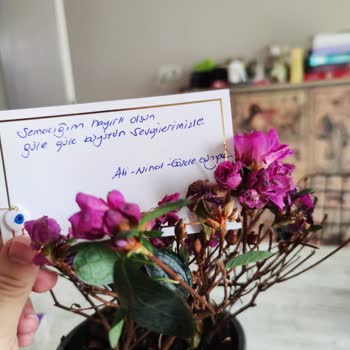 Semacığım hayırlı olsun
güle güle Sevgilerimizle
Ali-Nihal-Gözde